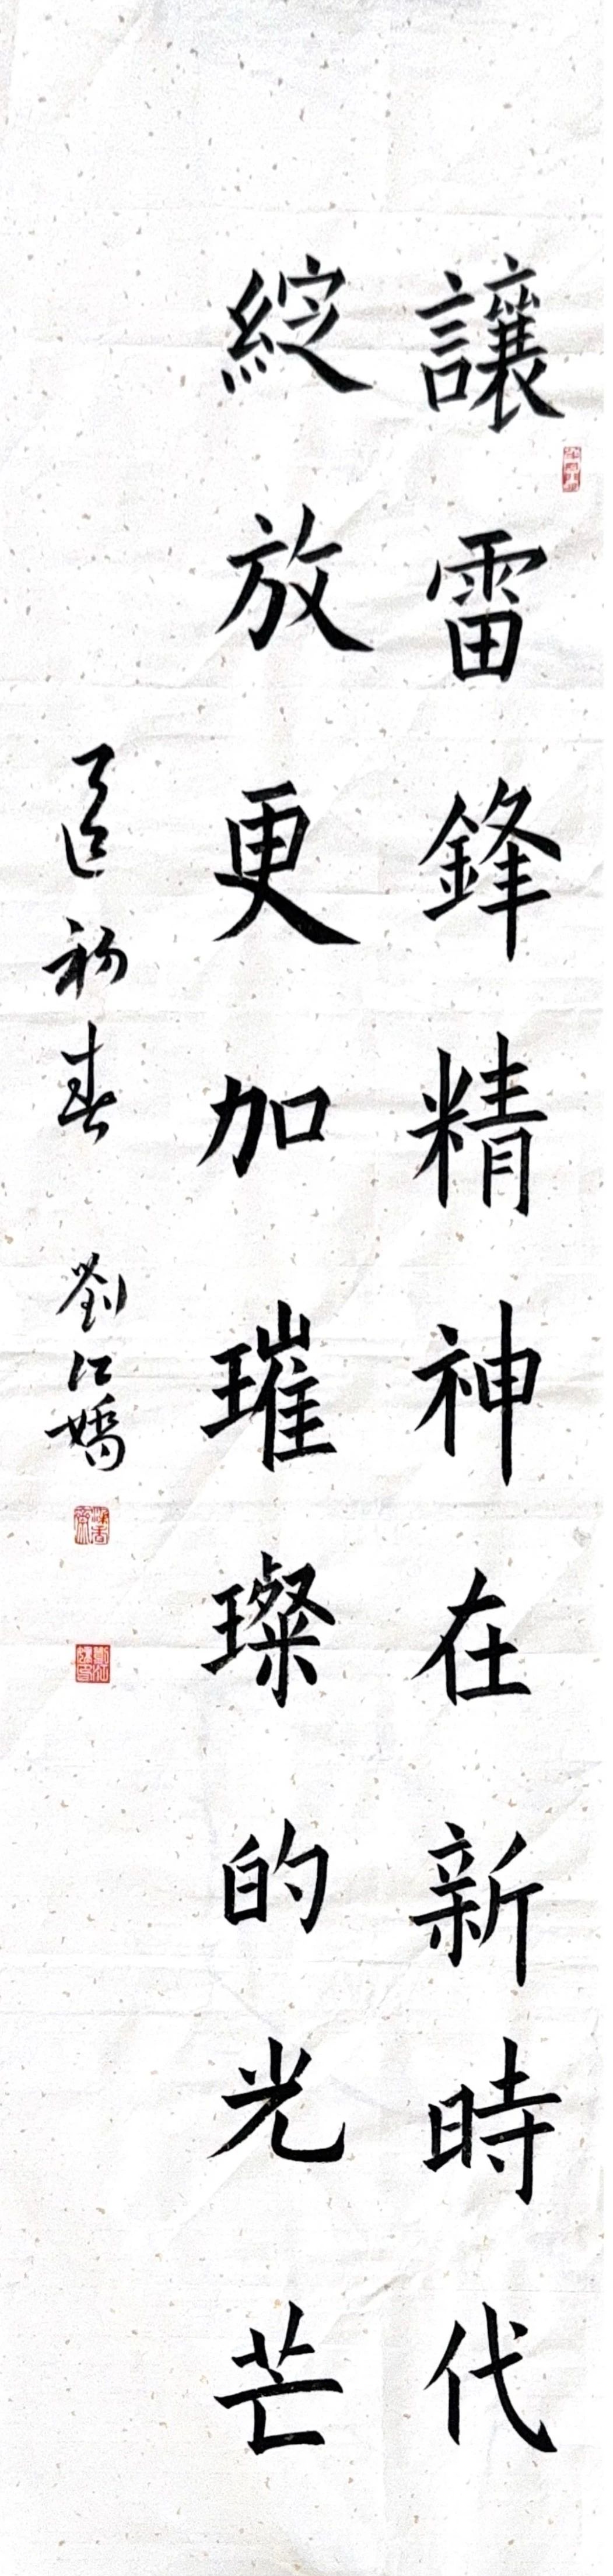 讓雷鋒精神在新時代
綻放更加璀璨的光芒
初春 劉江嬌